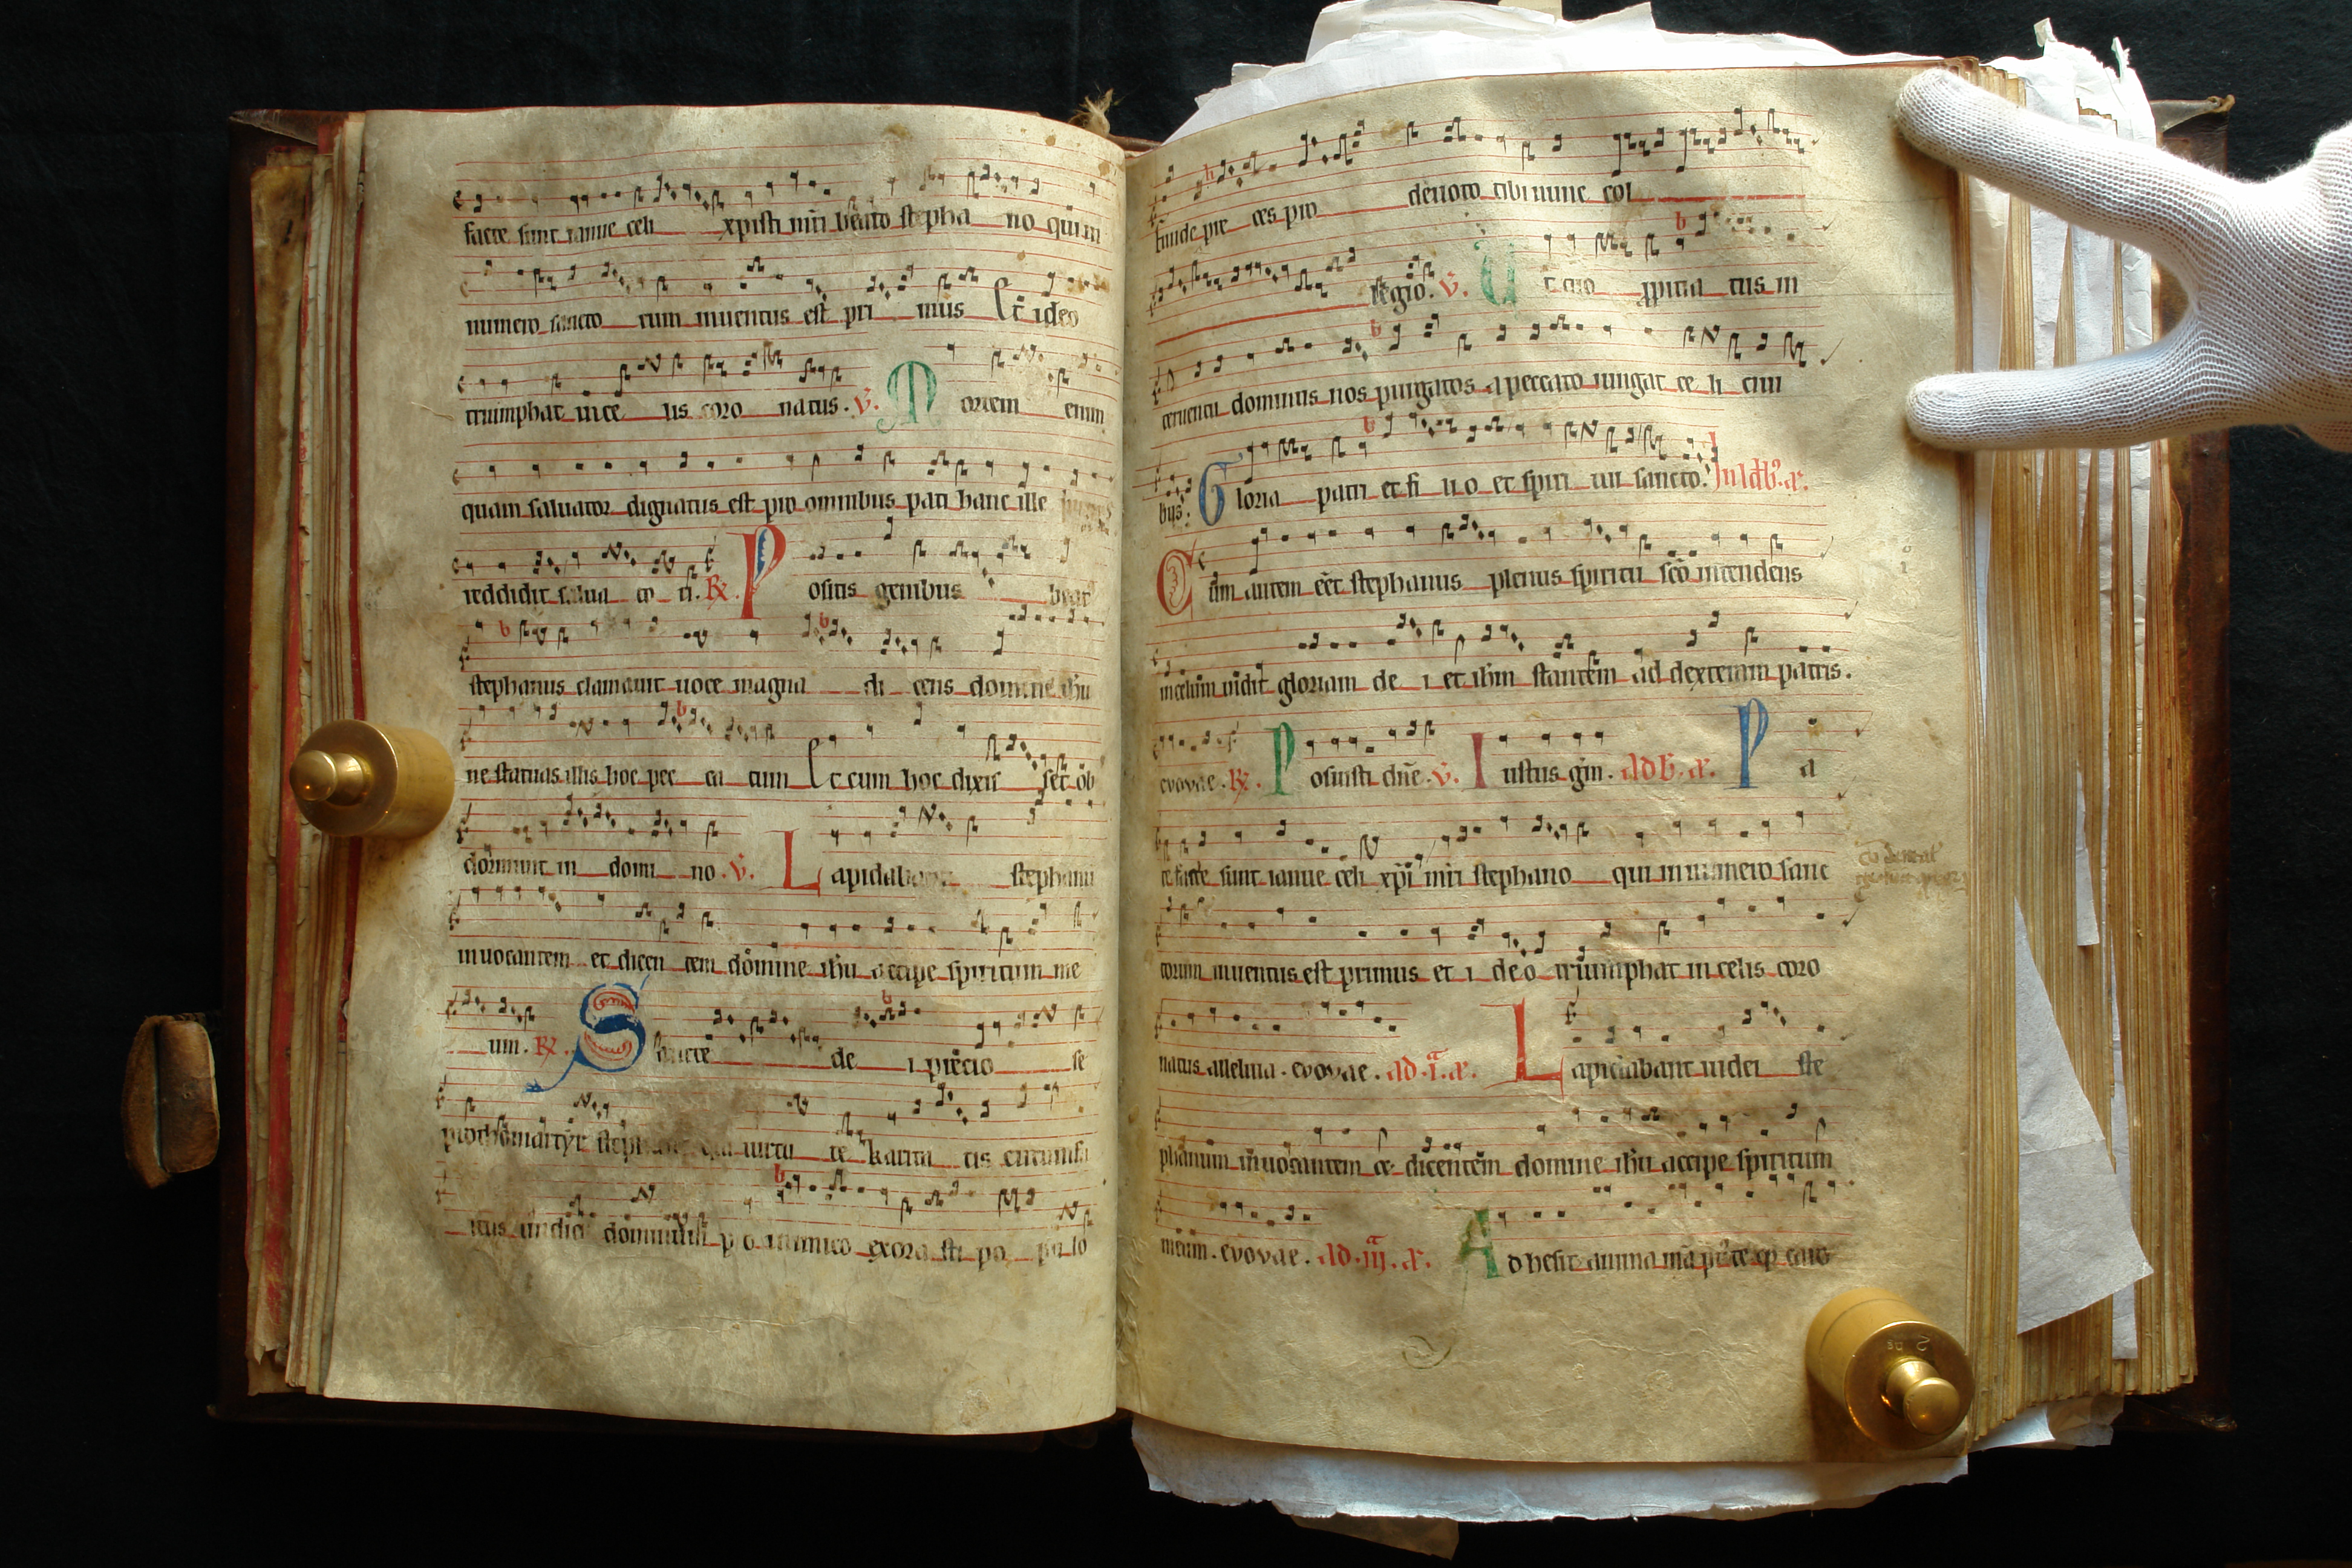 facte sunt ianue celi xpisti nr̄i beato stepha no qui in
numero sancto rum inuentus est pri mus Et ideo
triumphat in ce lis coro natus. v̄. Mortem enim
quam saluator dignatus est pro omnibus pati hanc ille
reddidit salua to ri. R̷. Positis genibus beat9
stephanus clamauit uoce magna di cens domine ih̄u
ne statuas illis hoc pec ca tum Et cum hoc dixis set ob
dormiuit in domi no. v̄. Lapidabant stephanu
inuocantem et dicen tem domine ih̄u accipe spiritum me
um. R̷. Sancte de i precio se
prothomartyr uirtu te karita tis circumful
tus undiq dominum p o inimico exora sti po pu lo
funde pre ces pro deuoto tibi nunc col
legio. v̄. Ut tuo ꝓpitia tus in
teruentu dominus nos purgatos a peccato iungat ce li ciui
bus. Gloria patri et fi li o et spiri tui sancto. In ldb'. a.
Cum autem eēt stephanus plenus spiritu sc̄o intendens
in celum uidit gloriam de i et ih̄m stantem ad dexteram patris.
evovae. R̷. Posuisti dn̄e. v̄. Iustus gīn. ad b. a. Pa
te facte sunt ianue celi xp̄i nr̄i stephano qui in numero sanc
torum inuentus est primus et i deo triumphat in celis coro
natus alleluia. evovae. ad .i.ā a. Lapidabant iudei ste
phanum inuocantem et dicentem domine ih̄u accipe spiritum
meum. evovae. ad .iij.ā a. Adhesit anima mā caro